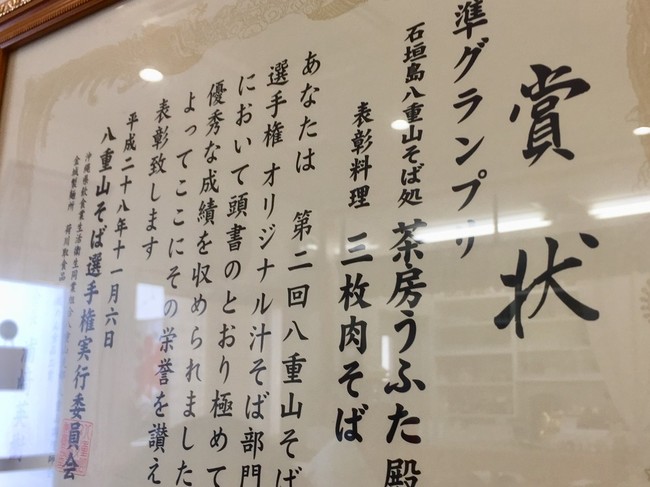 賞状
準グランプリ
石垣島八重山そば処 茶房うふた殿
表彰料理 三枚肉そば
あなたは 第二回八重山そば
選手権 オリジナル汁そば部門
において頭書のとおり極めて
優秀な成績を収められました
よってここにその栄誉を讃え
表彰致します
平成二十八年十一月六日
八重山そば選手権実行委員会
沖縄県飲食業生活衛生同業組合八重山
金城製麺所